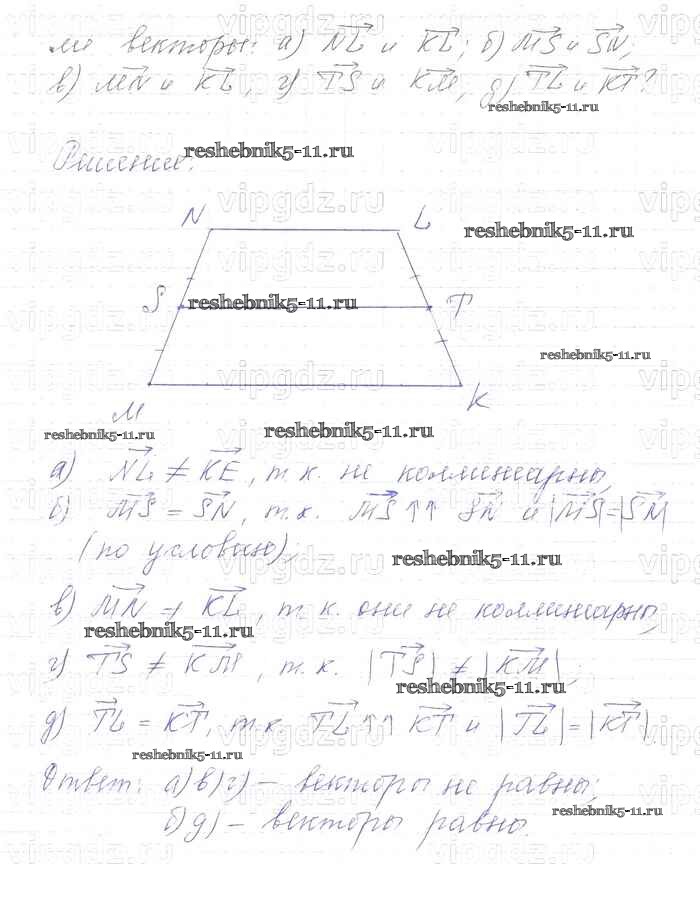 ли векторы: а) NL и KL; б) MS и SN;
в) MN и KL, г) TS и KM, д) TL и KT?
reshebnik5-11.ru
Решение:
reshebnik5-11.ru
N L
reshebnik5-11.ru
S reshebnik5-11.ru T
reshebnik5-11.ru
M K
reshebnik5-11.ru reshebnik5-11.ru
а) NL ≠ KE, т.к. не коллинеарны,
б) MS = SN, т.к. MS ↑↑ SN и |MS|=|SN|
(по условию);
reshebnik5-11.ru
в) MN ≠ KL, т.к. они не коллинеарны,
reshebnik5-11.ru
г) TS ≠ KM, т.к. |TS| ≠ |KM|;
reshebnik5-11.ru
д) TL = KT, т.к. TL ↑↑ KT и |TL|=|KT|.
reshebnik5-11.ru
Ответ: а)в)г) – векторы не равны;
reshebnik5-11.ru
б)д) – векторы равны.
vipgdz.ru